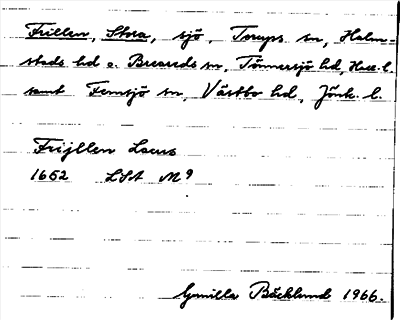 Frillen, Stora, sjö, Torups sn, Halm-
stads hd o. Breareds sn, Tönnersjö hd, Hall. l.
samt Femsjö sn, Västbo hd, Jönk. l.
Frijllen Lacus
1652 LSA M⁹
Gunilla Bäcklund 1966.